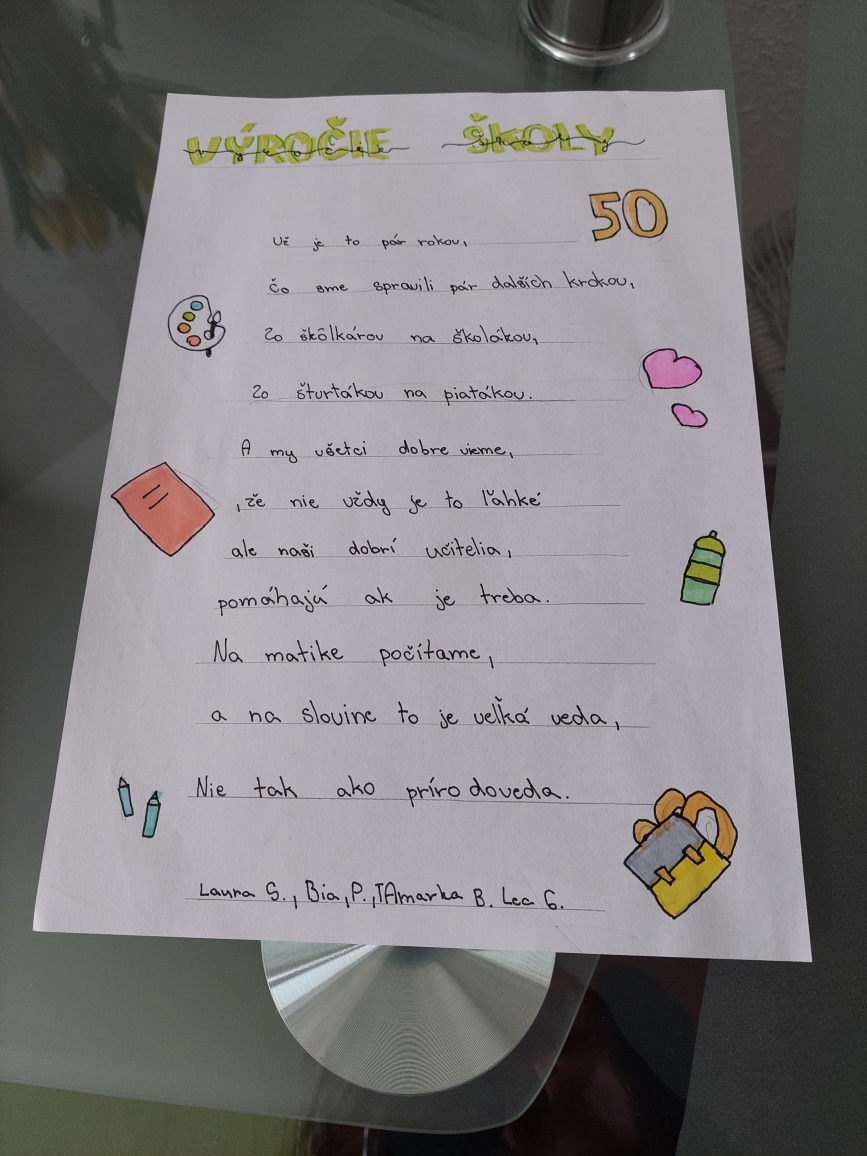 VÝROČIE ŠKOLY
50
Už je to pár rokov,
čo sme spravili pár dalších krokov,
zo škôlkárov na školákov,
zo šturtákov na piatákov.
A my všetci dobre vieme,
,že nie vždy je to ľahké
ale naši dobrí učitelia,
pomáhajú ak je treba.
Na matike počítame,
a na slovine to je veľká veda,
Nie tak ako prírodoveda.
Laura S., Bia, P., TAmarka B. Lea G.